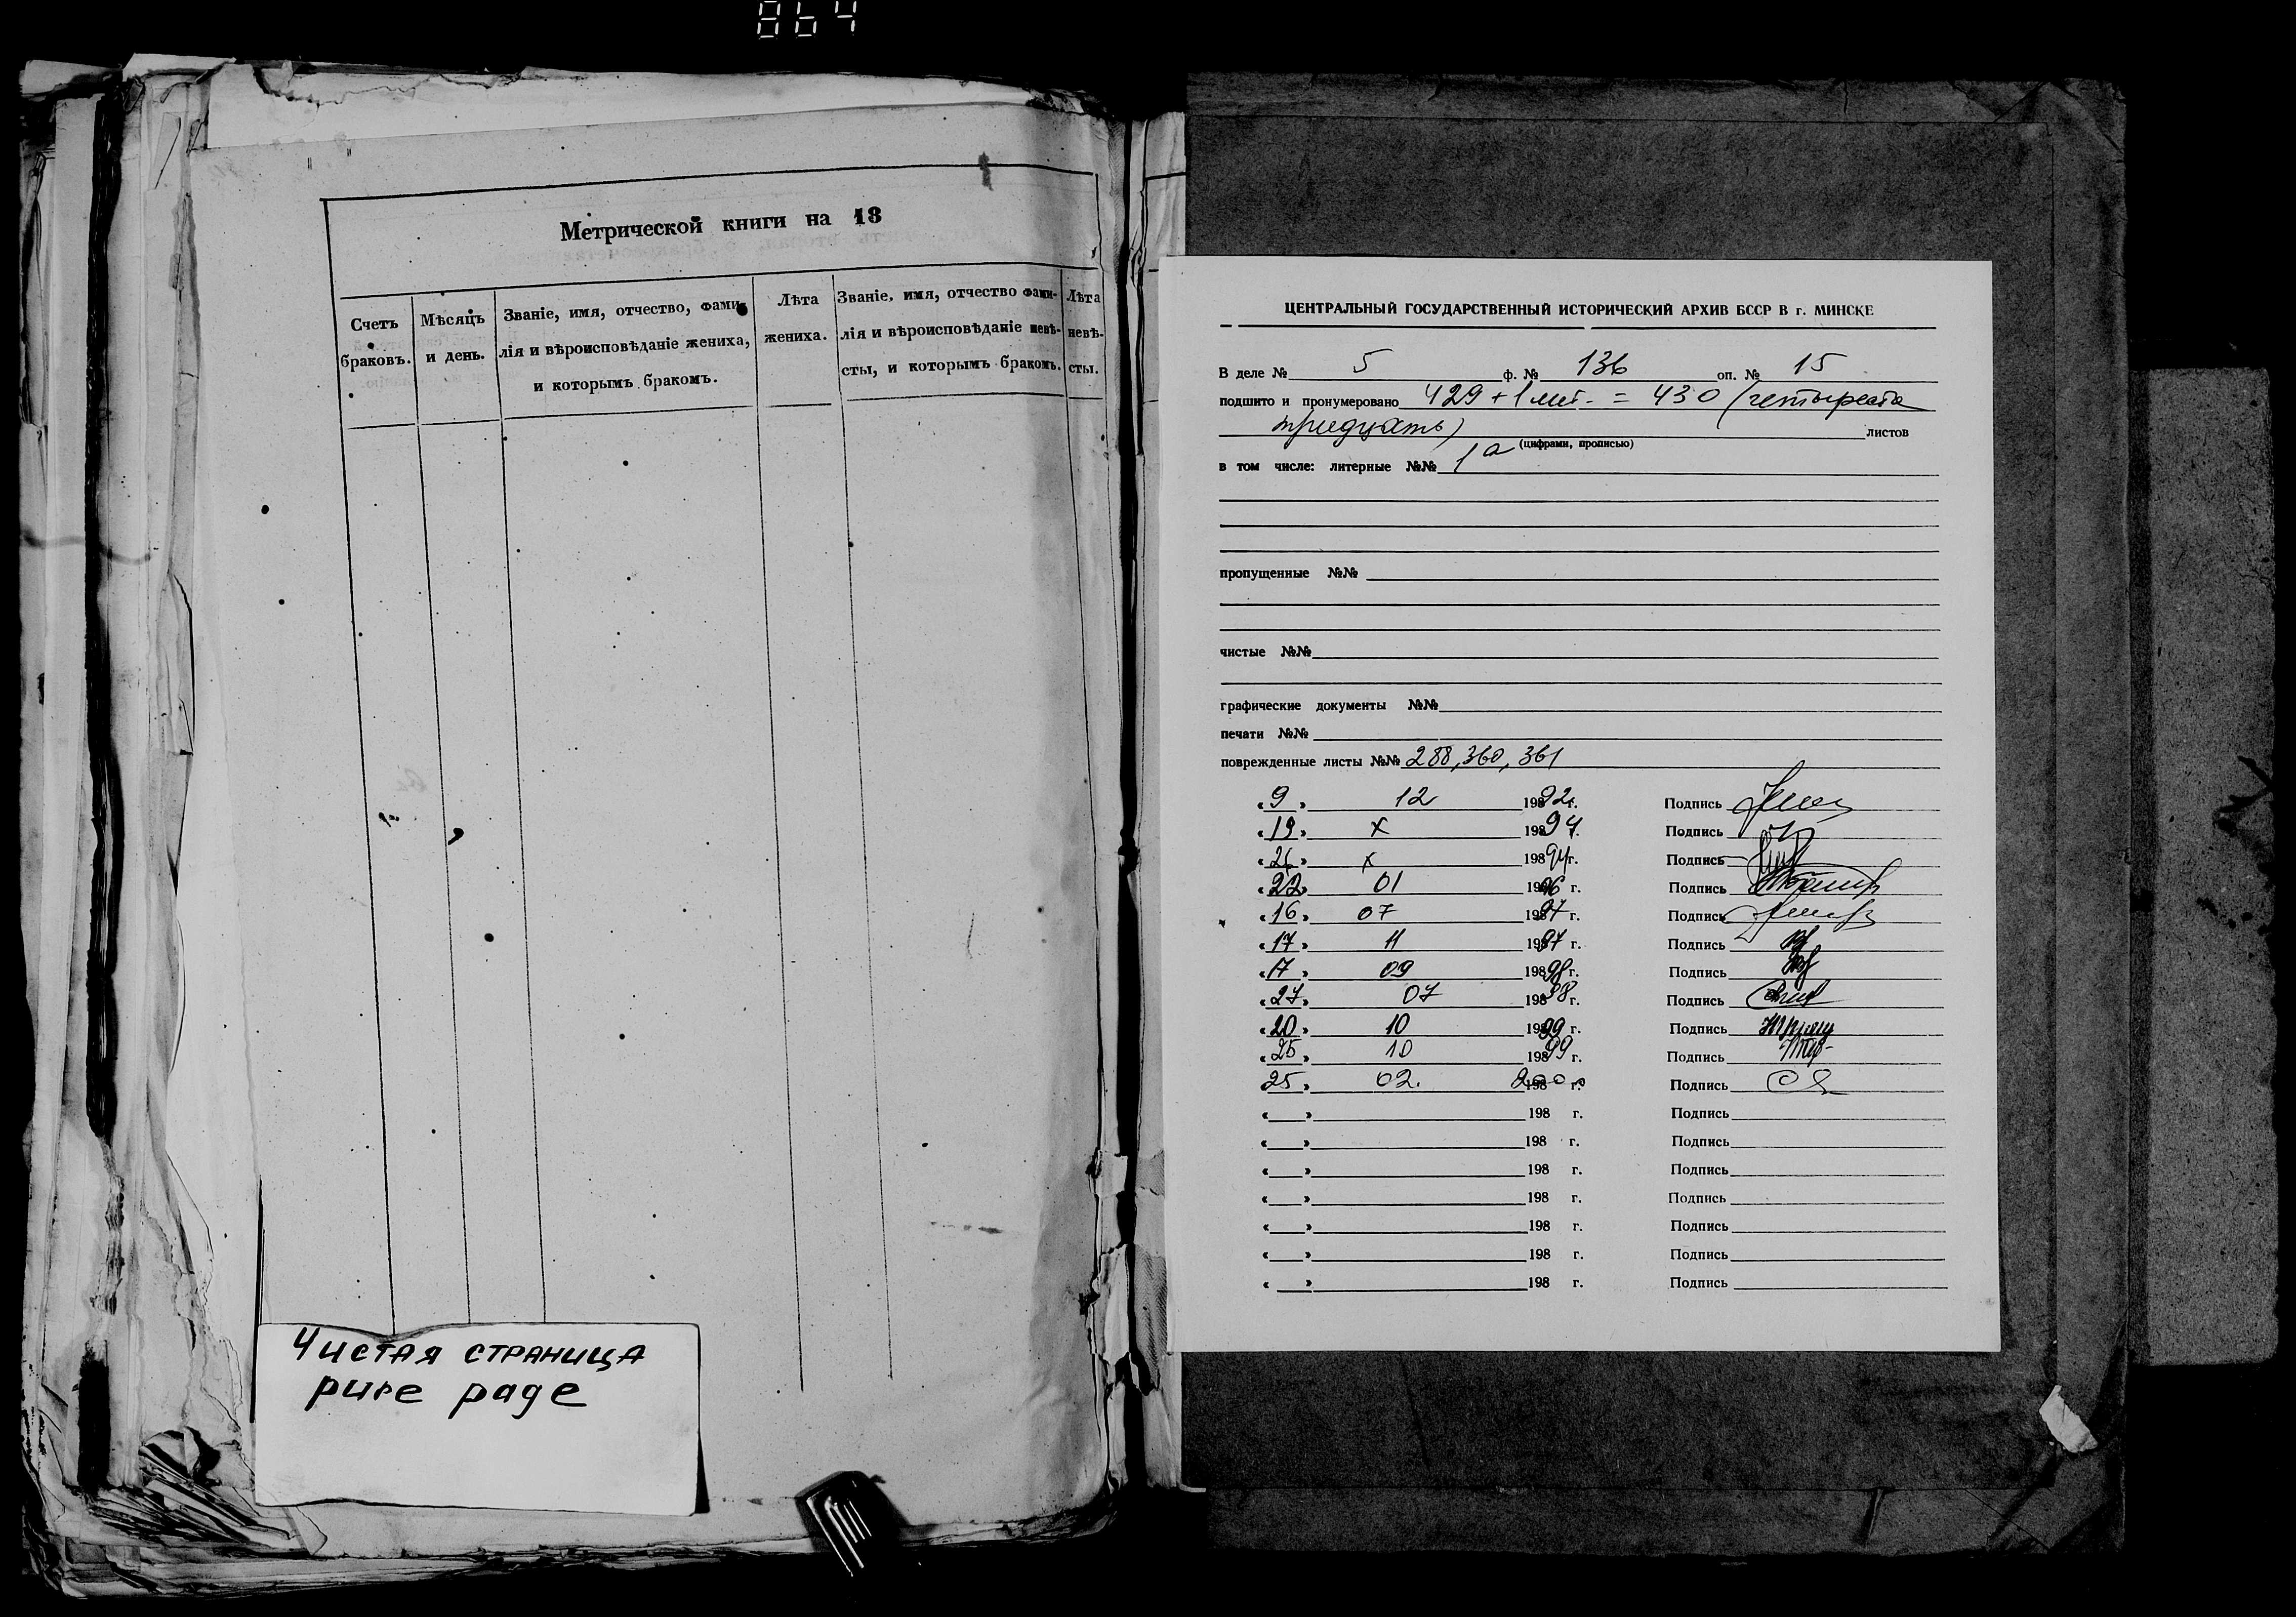 864
Метрической книги на 18
Счетъ
браковъ.
Мѣсяцъ
и день.
Званіе, имя, отчество, фами-
лія и вѣроисповѣданіе жениха,
и которымъ бракомъ.
Лѣта
жениха.
Званіе, имя, отчество фами-
лія и вѣроисповѣданіе невѣ-
сты, и которымъ бракомъ.
Лѣта
невѣ-
сты.
Чистая страница
pure page
ЦЕНТРАЛЬНЫЙ ГОСУДАРСТВЕННЫЙ ИСТОРИЧЕСКИЙ АРХИВ БССР В г. МИНСКЕ
В деле № 5 ф. № 136 оп. № 15
подшито и пронумеровано 429 + 1 лит. = 430 (четыреста
тридцать) листов
(цифрами, прописью)
в том числе: литерные №№ 1а
пропущенные №№
чистые №№
графические документы №№
печати №№
поврежденные листы №№ 288, 360, 361
«9» 12 19892г. Подпись
«19» X 19894г. Подпись
«26» X 19894г. Подпись
«22» 01 19896 г. Подпись
«16» 07 19897 г. Подпись
«17» 11 19897 г. Подпись
«17» 09 19898г. Подпись
«27» 07 19898г. Подпись
«20» 10 19899 г. Подпись
«25» 10 19899 г. Подпись
25» 02. 2000 г. Подпись
« » 198 г. Подпись
« » 198 г. Подпись
« » 198 г. Подпись
« » 198 г. Подпись
« » 198 г. Подпись
« » 198 г. Подпись
« » 198 г. Подпись